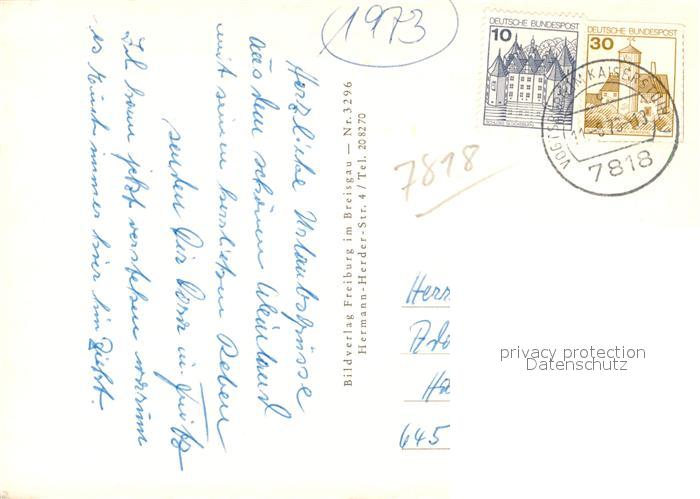 1973
DEUTSCHE BUNDESPOST
10
DEUTSCHE BUNDESPOST
30
AM KAISERSTUHL
7818
7818
Herzliche Urlaubsgrüsse
aus dem schönen Weinland
mit seinen herrlichen Reben
senden Dir Dora und
Ich kann jetzt verstehen warum
es Euch immer hier hin zieht.
Bildverlag Freiburg im Breisgau — Nr. 3296
Hermann-Herder-Str. 4 / Tel. 208270
Herr
Ado
Ha
645
privacy protection
Datenschutz